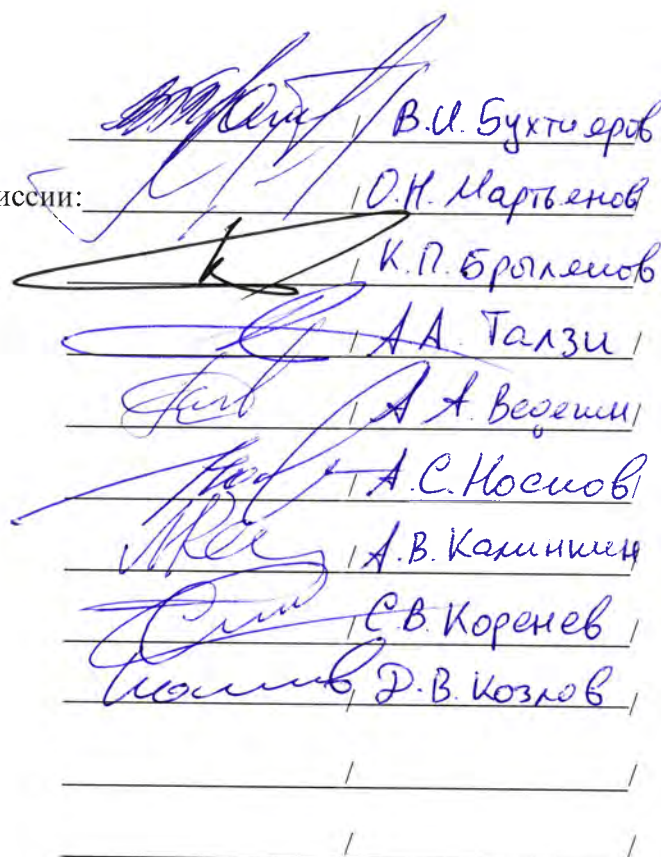 / В.И. Бухтияров /
иссии: / О.Н. Мартьянов /
/ К.П. Брыляков /
/ А.А. Талзи /
/ А.А. Ведягин /
/ А.С. Носков /
/ А.В. Калинкин /
/ С.В. Коренев /
/ Д.В. Козлов /
/ /
/ /